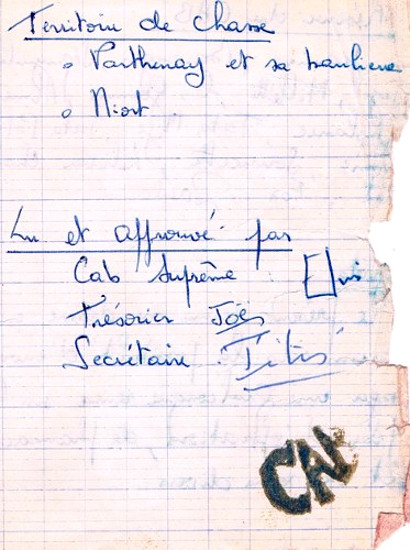 Territoire de Chasse
Parthenay et sa banlieue
Niort
Lu et approuvé par
Cab Suprême :
Trésorier Joës
Secrétaire : Titis